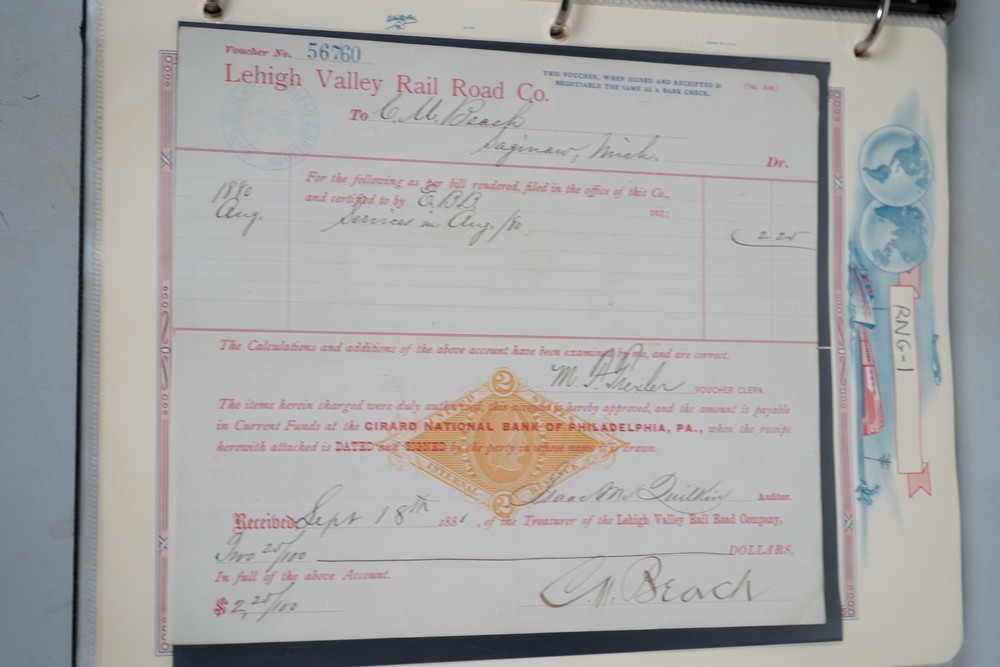 Voucher No. 56760
Lehigh Valley Rail Road Co.
THIS VOUCHER, WHEN SIGNED AND RECEIPTED IS
NEGOTIABLE THE SAME AS A BANK CHECK.
To C. M. Beach
Saginaw, Mich.
Dr.
1880
Aug.
For the following as per bill rendered, filed in the office of this Co.,
and certified to by E.B.B. viz:
Services in Aug. /80
2 25
The Calculations and additions of the above account have been examined by me, and are correct.
VOUCHER CLERK.
The items herein charged were duly authorized, this account is hereby approved, and the amount is payable
in Current Funds at the GIRARD NATIONAL BANK OF PHILADELPHIA, PA., when the receipt
herewith attached is DATED and SIGNED by the party in whose name it is drawn.
2
UNITED STATES
INTERNAL REVENUE
2
Isaac McQuilkin Auditor.
Received Sept 18th 1880, of the Treasurer of the Lehigh Valley Rail Road Company,
Two 25/100 DOLLARS,
In full of the above Account.
$2,25/100
C. M. Beach
RNG-1